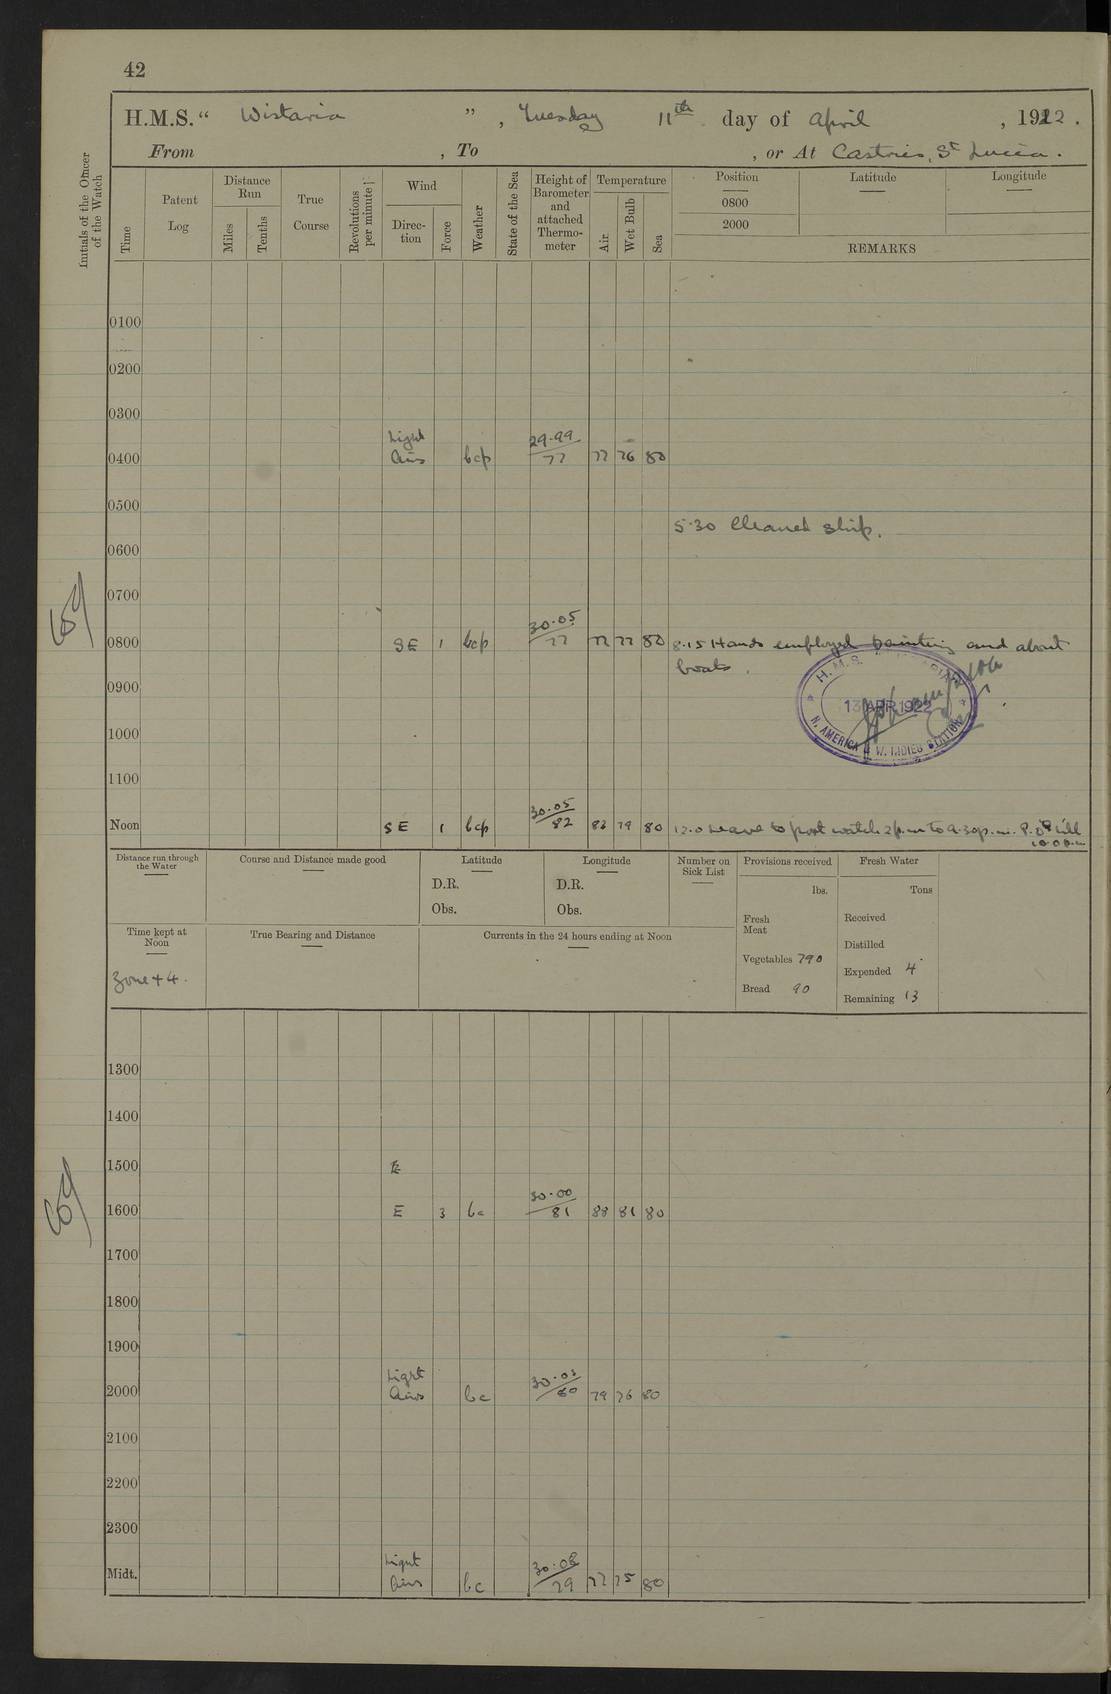 42
H.M.S. “ Wistaria ” , Tuesday 11th day of April , 1922 .
From , To , or At Castries, St Lucia .
Initials of the Officer of the Watch
Time
Patent Log
Distance Run
Miles
Tenths
True Course
Revolutions per minute
Wind
Direc-tion
Force
Weather
State of the Sea
Height of Barometer and attached Thermo-meter
Temperature
Air.
Wet Bulb
Sea
Position Latitude Longitude
0800
2000
REMARKS
0100
0200
0300
0400 Light Airs bcp 29.99 77 77 76 80
0500
5.30 Cleaned ship.
0600
0700
0800 SE 1 bcp 30.05 77 77 77 80 8.15 Hands employed painting and about
boats.
0900
H.M.S.
13 APR 1922
N. AMERICA & W. INDIES STATION
1000
1100
Noon SE 1 bcp 30.05 82 83 79 80 12.0 Leave to port watch 2 p.m. to 9.30 p.m. P.O's till
10.0 p.m.
Distance run through the Water
Course and Distance made good
Latitude
D.R.
Obs.
Longitude
D.R.
Obs.
Number on Sick List
Provisions received
lbs.
Fresh Meat
Vegetables 790
Bread 90
Fresh Water
Tons
Received
Distilled
Expended 4
Remaining 13
Time kept at Noon
Zone +4.
True Bearing and Distance
Currents in the 24 hours ending at Noon
1300
1400
1500
1600 E 3 bc 30.00 81 88 81 80
1700
1800
1900
2000 Light Airs bc 30.03 80 79 76 80
2100
2200
2300
Midt. Light Airs bc 30.08 79 77 75 80